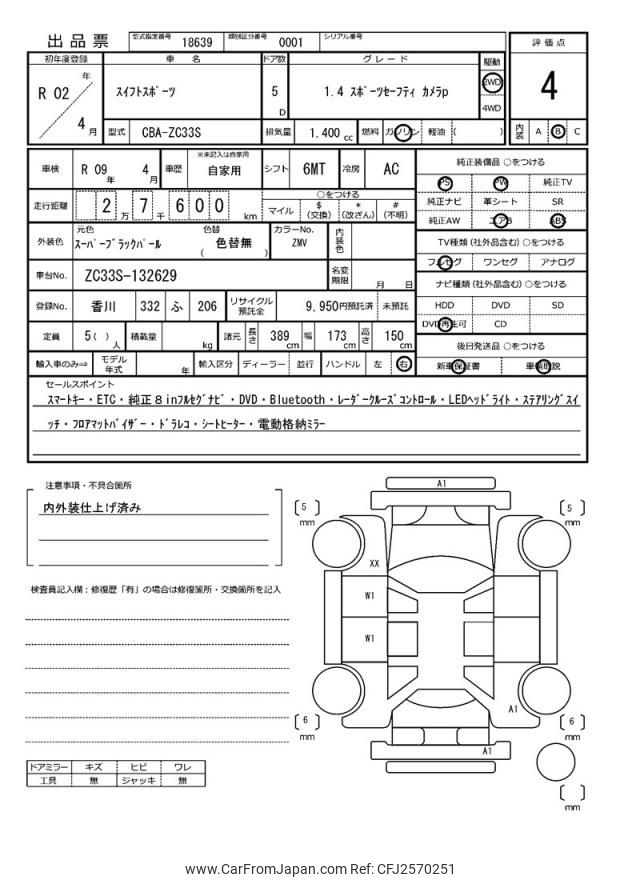 出品票 型式指定番号 18639 類別区分番号 0001 シリアル番号
評価点
4
内装 A B C
初年度登録 車名 ドア数 グレード 駆動
R 02 年 4 月
スイフトスポーツ 5 D 1.4 スポーツセーフティ カメラp
2WD
4WD
型式 CBA-ZC33S 排気量 1,400 cc 燃料 ガソリン 軽油 ( )
車検 R 09 年 4 月 車歴 ※未記入は自家用 自家用 シフト 6MT 冷房 AC
走行距離 2 万 7 千 6 0 0 km
○をつける
マイル $ (交換) * (改ざん) # (不明)
外装色 元色 スーパーブラックパール 色替 ( 色替無 ) カラーNo. ZMV 内装色
車台No. ZC33S-132629 名変期限 月 日
登録No. 香川 332 ふ 206 リサイクル預託金 9,950円預託済 未預託
定員 5( ) 人 積載量 kg 諸元 長さ 389 cm 幅 173 cm 高さ 150 cm
輸入車のみ⇒ モデル年式 年 輸入区分 ディーラー 並行 ハンドル 左 右
純正装備品 ○をつける
PS PW 純正TV
純正ナビ 革シート SR
純正AW エアB ABS
TV種類(社外品含む) ○をつける
フルセグ ワンセグ アナログ
ナビ種類(社外品含む) ○をつける
HDD DVD SD
DVD再生可 CD
後日発送品 ○をつける
新車保証書 車輌取説
セールスポイント
スマートキー・ETC・純正８inフルセグナビ・DVD・Bluetooth・レーダークルーズコントロール・LEDヘッドライト・ステアリングスイ
ッチ・フロアマットバイザー・ドラレコ・シートヒーター・電動格納ミラー
注意事項・不具合箇所
内外装仕上げ済み
検査員記入欄：修復歴「有」の場合は修復箇所・交換箇所を記入
ドアミラー キズ ヒビ ワレ
工具 無 ジャッキ 無
A1
5 mm
5 mm
XX
W1
W1
A1
6 mm
6 mm
A1
mm
www.CarFromJapan.com Ref: CFJ2570251